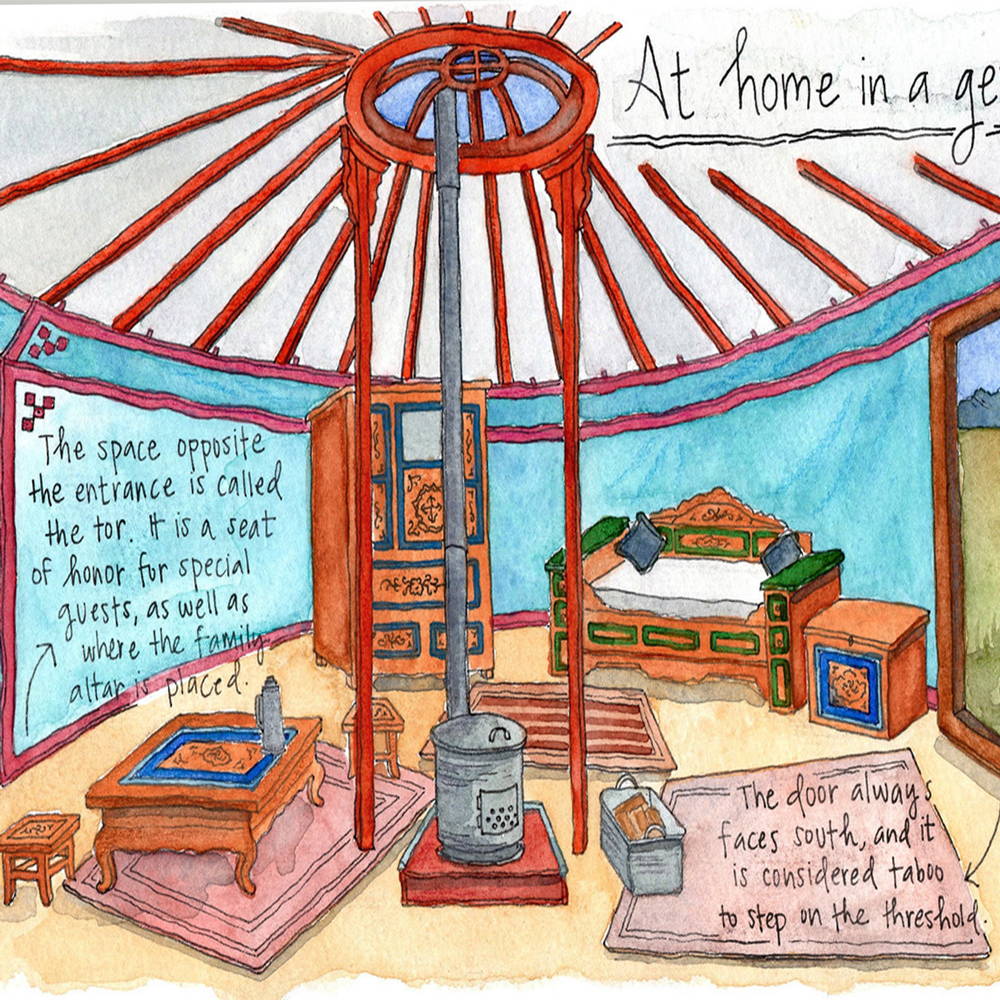 At home in a ge
The space opposite
the entrance is called
the tor. It is a seat
of honor for special
guests, as well as
where the family
altar is placed.
The door always
faces south, and it
is considered taboo
to step on the threshold.